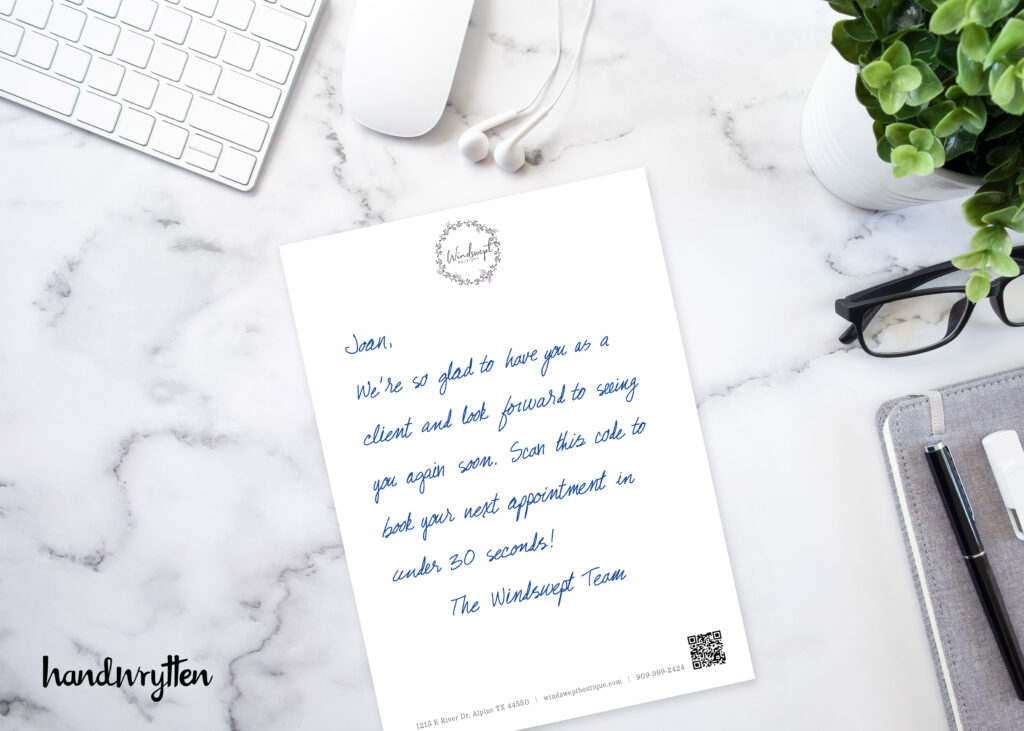 Windswept
BOUTIQUE
Joan,
We're so glad to have you as a
client and look forward to seeing
you again soon. Scan this code to
book your next appointment in
under 30 seconds!
The Windswept Team
1215 E River Dr, Alpine TX 44550 | windsweptboutique.com | 909-999-2424
handwrytten